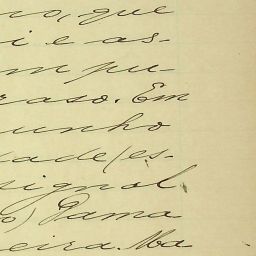 no, que
i e as-
m pu-
raso. Em
unho
dade (es-
signal
o) Dama
eira. Ma